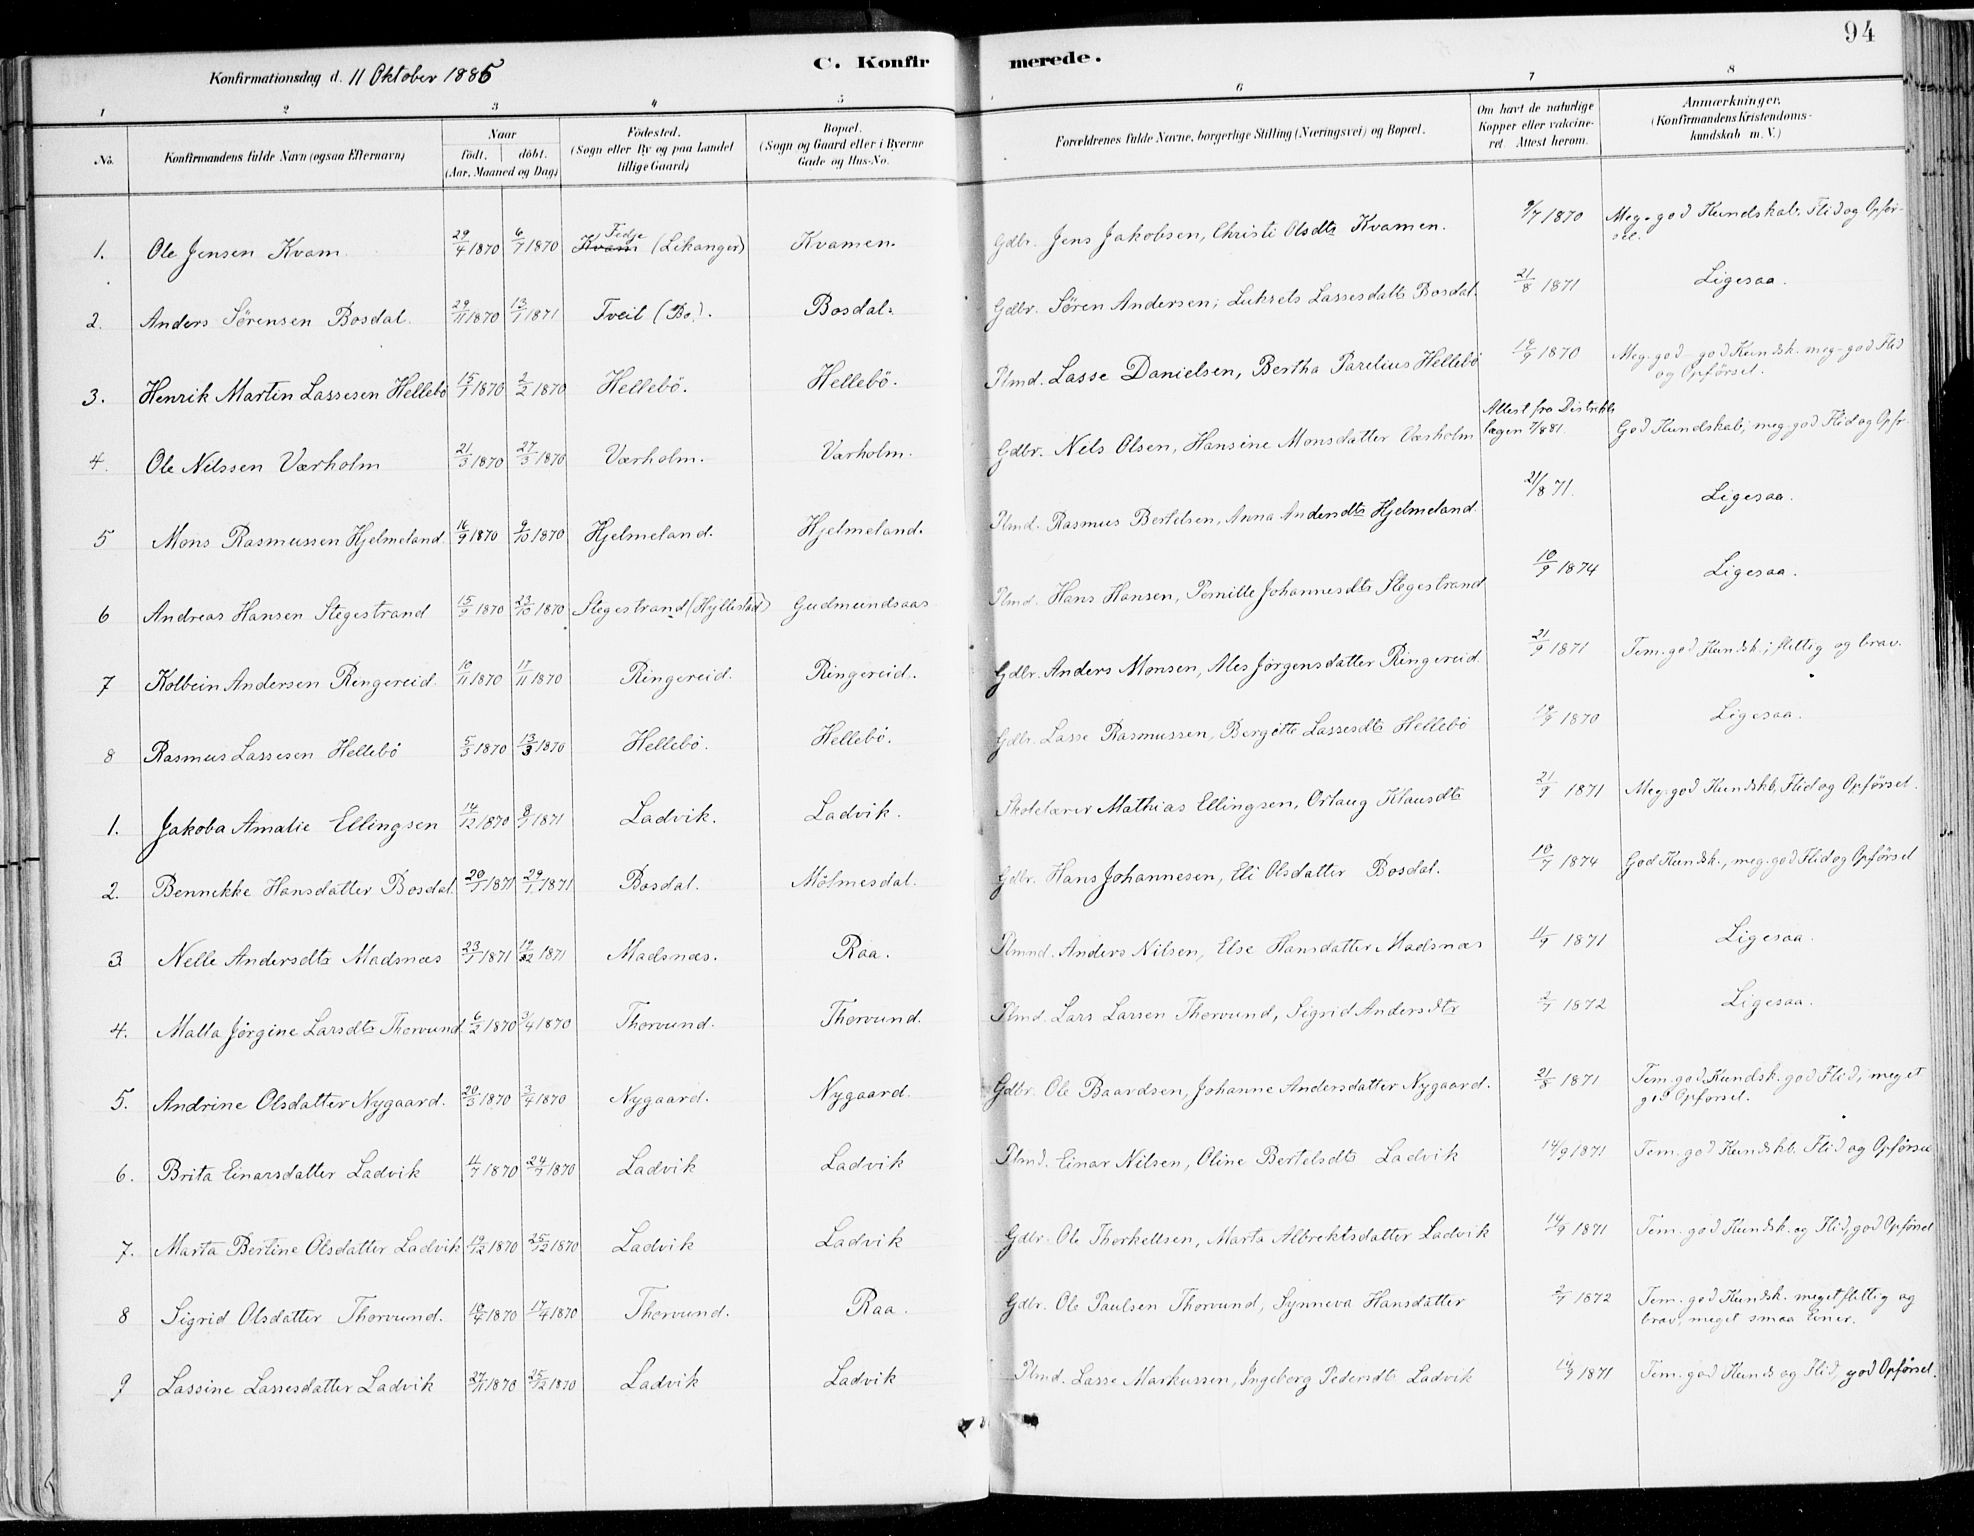 94
Konfirmationsdag d. 11 Oktober 1885
C. Konfirmerede.
1 2 3 4 5 6 7 8
No. Konfirmandens fulde Navn (ogsaa Efternavn) Naar födt. döbt. (Aar, Maaned og Dag) Födested. (Sogn eller By og paa Landet tillige Gaard) Bopæl. (Sogn og Gaard eller i Byerne Gade og Hus-No. Forældrenes fulde Navne, borgerlige Stilling (Næringsvei) og Bopæl. Om havt de naturlige Kopper eller vakcineret. Attest herom. Anmærkninger. (Konfirmandens Kristendomskundskab m. V.)
1. Ole Jensen Kvam 29/4 1870 6/7 1870 Kvam Tidje (Lekanger) Kvamen. Gdbr. Jens Jakobsen, Christi Olsdtr Kvamen. 9/7 1870 Meg. god Kundskab, Flid og Opførsel.
2. Anders Sørensen Bosdal. 29/11 1870 13/1 1871 Tveit (Bo). Bosdal. Gdbr. Søren Andersen, Lassesdatts Bosdal. 21/8 1871 Ligesaa.
3. Henrik Martin Lassesen Hellebö 15/1 1870 2/2 1870 Hellebö. Hellebö. Plmd. Lasse Danielsen, Bertha Parelius Hellebö 1870 Meg. god - god Kundsk. meg-god Flid og Opførsel.
4. Ole Nilssen Værholm 21/3 1870 27/3 1870 Værholm. Værholm. Gdbr. Nils Olsen, Hansine Monsdatter Værholm Attest fra Distriktslægen 7/881. God Kundskab, meg. god Flid og Opfr.
5 Mons Rasmussen Hjelmeland 16/9 1870 9/10 1870 Hjelmeland. Hjelmeland. Plmd. Rasmus Bertelsen, Anna Andersdtr Hjelmeland. 21/8 71. Ligesaa.
6 Andreas Hansen Stegestrand 15/9 1870 23/10 1870 Stegestrand (Hyllestad) Gudmundsaas Plmd. Hans Hansen, Pernille Johannesdtr Stegestrand 10/9 1874 Ligesaa.
7 Kolbein Andersen Ringereid. 10/11 1870 17/11 1870 Ringereid. Ringereid. Gdbr. Anders Monsen, Ales Jørgensdatter Ringereid. 21/9 1871 Tem. god Kundsk.; flittig og brav.
8 Rasmus Lassesen Hellebö 5/3 1870 13/3 1870 Hellebö. Hellebö. Gdbr. Lasse Rasmussen, Bergitte Lassesdtr Hellebö 1870 Ligesaa.
1. Jakoba Amalie Ellingsen 14/12 1870 8/1 1871 Ladvik. Ladvik. Skolelærer Mathias Ellingsen, Orlaug Klausdtr 21/9 1871 Meg. god Kundskb, Flid og Opførsel.
2. Bennikke Hansdatter Bosdal. 20/1 1871 29/1 1871 Bosdal. Mølmesdal. Gdbr. Hans Johannesen, Eli Olsdatter Bosdal. 10/9 1874 God Kundsk., meg. god Flid og Opførsel
3. Nelle Andersdtr Madsnæs 23/1 1871 19/2 1871 Madsnæs. Raa. Plmnd. Anders Nilsen, Else Hansdatter Madsnæs 11/9 1871 Ligesaa.
4. Malla Jørgine Larsdtr Thorvund 6/2 1870 3/4 1870 Thorvund. Thorvund. Plmd. Lars Larsen Thorvund, Sigrid Andersdtr 1872 Ligesaa.
5. Andrine Olsdatter Nygaard. 20/3 1870 3/4 1870 Nygaard. Nygaard. Gdbr. Ole Baardsen, Johanne Andersdatter Nygaard. 21/8 1871 Tem. god Kundsk. god Flid, meget god Opførsel.
6. Brita Einarsdatter Ladvik 11/7 1870 24/7 1870 Ladvik Ladvik Plmd. Einar Nilsen, Oline Bertelsdtr Ladvik 14/9 1871 Tem. god Kundskb. Flid og Opførsel
7. Marta Bertine Olsdatter Ladvik 19/12 1870 25/12 1870 Ladvik Ladvik Gdbr. Ole Thorkellsen, Marta Albrektsdatter Ladvik 14/9 1871 Tem. god Kundsk. og Flid, god Opførsel
8 Sigrid Olsdatter Thorvund. 10/4 1870 17/4 1870 Thorvund. Raa. Gdbr. Ole Paulsen Thorvund, Synneva Hansdatter 1872 Tem. god Kundsk. meget flittig og brav, meget smaa Evner.
9 Lassine Lassesdatter Ladvik 27/11 1870 25/12 1870 Ladvik Ladvik Plmd. Lasse Markussen, Ingeborg Pedersdtr Ladvik 14/9 1871 Tem. god Kunds og Flid, god Opførsel.